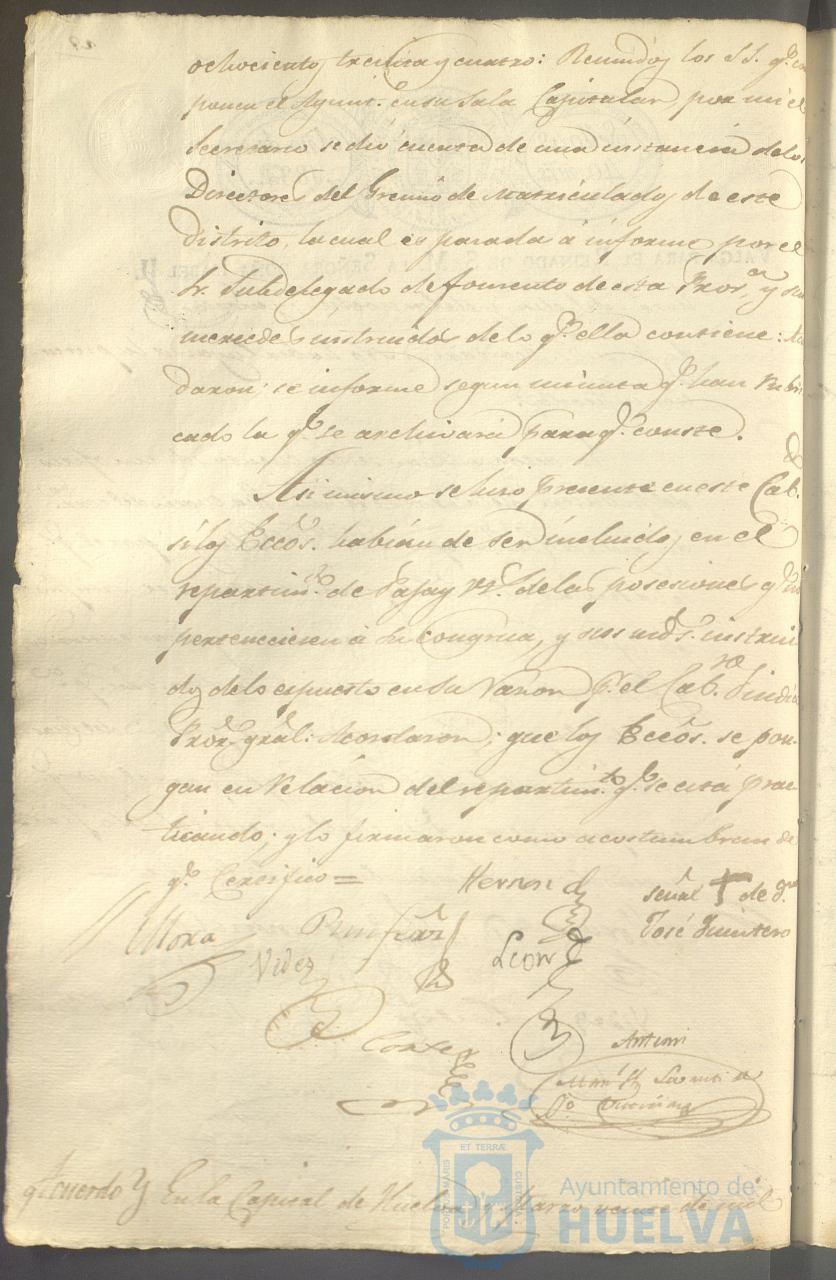 ochocientos treinta y cuatro: Reunidos los SS. q.e com
ponen el Ayunt.o en su Sala Capitular por mi el
Secretario se dió cuenta de una instancia de los
Directores del Gremio de Matriculados de este
Distrito, la cual es pasada á informe por el
Sr. Subdelegado de fomento de esta Prov.a y sus
mercedes instruidos de lo q.e ella contiene: Acor
daron; se informe segun minuta q.e han rubri
cado la q.e se archivará para q.e conste.
Asi mismo se hizo presente en este Cab.do
si los Eccos. habian de ser incluidos en el
repartim.to de Paja y de las posesiones q.e no
pertenecieren á su Congrua, y sus mds. instrui
dos de lo espuesto en su razon p.r el Cab.ro Sindico
Pror. gral: Acordaron; que los Eccos. se pon
gan en relacion del repartim.to q.e se está prac
ticando; y lo firmaron como acostumbran de
q.e Certifico =
Hernn
señal † de d.n
José Quintero
Mora
León
Videz
Cortes
Antoni
VALGA PARA EL REINADO DE S. M. LA SEÑORA DOÑA ISABEL II.
Acuerdo
En la Capital de Huelva y Marzo veinte de mil
PORTUS MARIS
ET TERRÆ
CUSTODIA
Ayuntamiento de
HUELVA